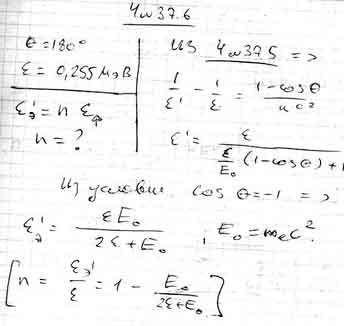 Чиv37.6
θ = 180°
ε = 0,255 МэВ
ε'э = n εф
n = ?
Из Чиv37.5 =>
1/ε' - 1/ε = (1-cosθ)/mc²
ε' = ε/(ε/E₀ (1-cosθ)+1
Из условие cosθ=-1 =>
ε'э = εE₀/(2ε+E₀) , E₀=mₑc².
[n = ε'э/ε = 1 - E₀/(2ε+E₀)]